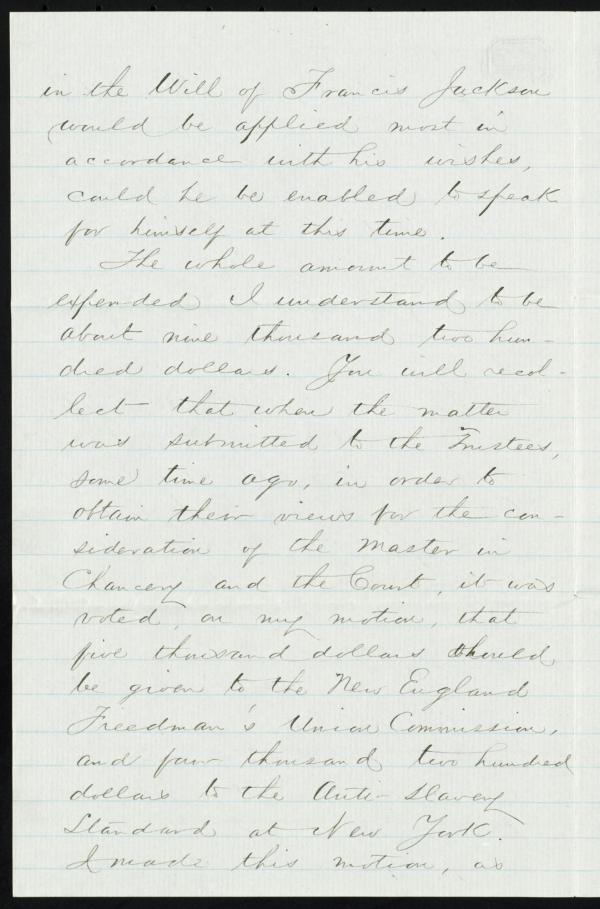 in the Will of Francis Jackson
would be applied most in
accordance with his wishes,
could he be enabled to speak
for himself at this time.
The whole amount to be
expended I understand to be
about nine thousand two hun-
dred dollars. You will recol-
lect that when the matter
was submitted to the Trustees,
some time ago, in order to
obtain their views for the con-
sideration of the Master in
Chancery and the Court, it was
voted, on my motion, that
five thousand dollars should
be given to the New England
Freedman's Union Commission,
and four thousand two hundred
dollars to the Anti-Slavery
Standard at New York.
I made this motion, as